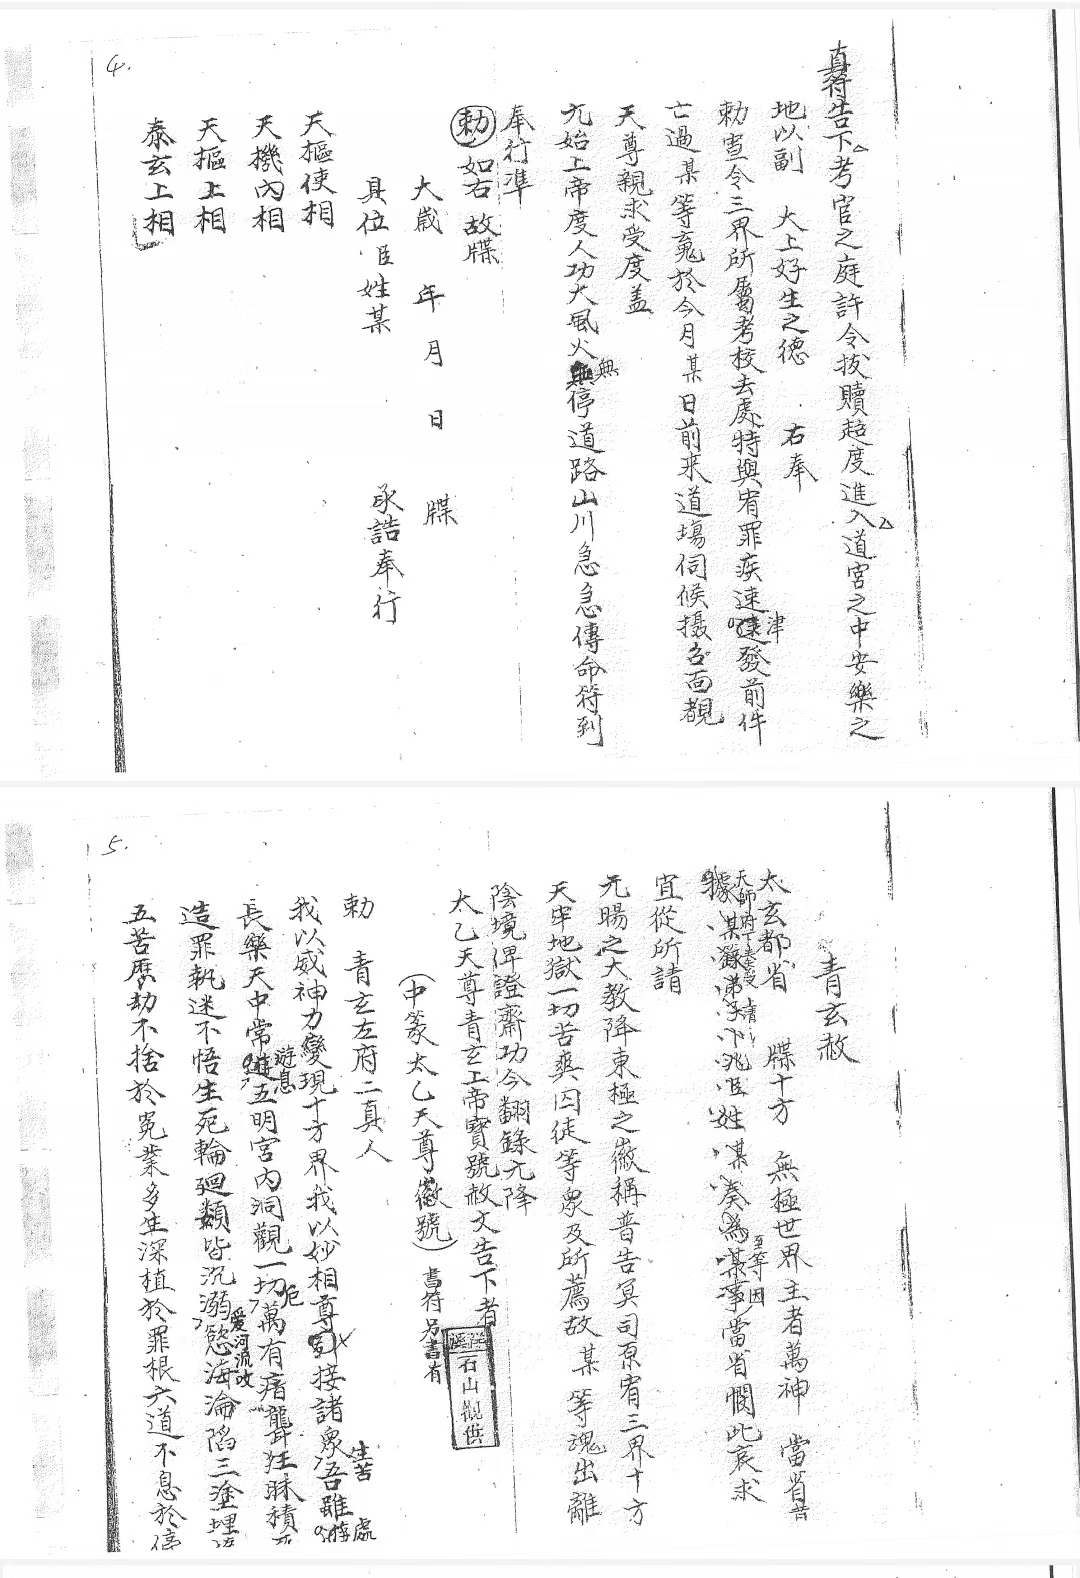 4.
真符告下考官之庭許令拔贖超度進入道宮之中安樂之
地以副 大上好生之德 右奉
勅雪令三界所屬考校去處特與宥罪疾速津發前件
亡過某等䰟於今月某日前来道場伺候攝召面覩
天尊親求受度盖
元始上帝度人功大風火無停道路山川急急傳命符到
奉行準
勅如右故牒
大歲 年 月 日 牒
具位臣姓某 承誥奉行
天樞使相
天機內相
天樞上相
泰玄上相
5.
青玄赦
太玄都省 牒十方 無極世界主者萬神 當省昔
據某籙弟子臣姓某奏為某事因當省憫此哀求
宜從所請
元暘之大教降東極之徽稱普告冥司原宥三界十方
天牢地獄一切苦爽囚徒等衆及所薦故某等魂出離
陰境俾證齋功今翻錄元降
太乙天尊青玄上帝寶號赦文告下者
(中篆太乙天尊徽號)書符另書有
石山觀供
勅 青玄左府二真人
我以威神力變現十方界我以妙相尊接諸衆生苦吾雖處
長樂天中常遊息五明宮內洞觀一切萬有痦聾狂昧積
造罪執迷不悟生死輪廻類皆沉溺慾海淪陷三塗埋
愛河流
五苦歷劫不捨於寃業多生深植於罪根六道不息於停